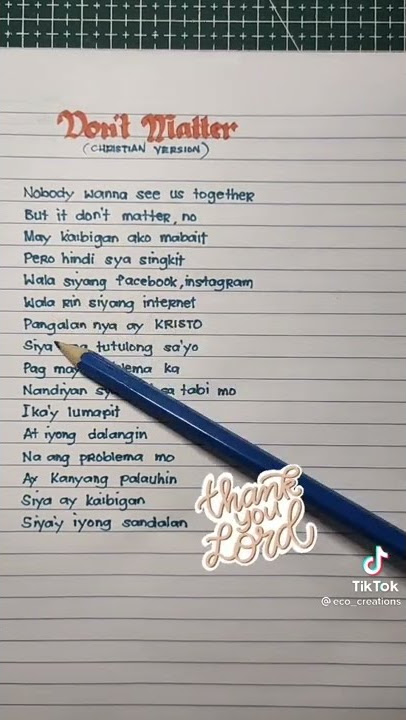 Don't Matter
(CHRISTIAN VERSION)
Nobody wanna see us together
But it don't matter, no
May kaibigan ako mabait
Pero hindi sya singkit
Wala siyang facebook, instagram
Wala rin siyang internet
Pangalan nya ay KRISTO
Siya tutulong sa'yo
Pag may ka
Nandiyan sa tabi mo
Ika'y lumapit
At iyong dalangin
Na ang problema mo
Ay Kanyang palauhin
Siya ay kaibigan
Siya'y iyong sandalan
thank
you
Lord
TikTok
@eco_creations